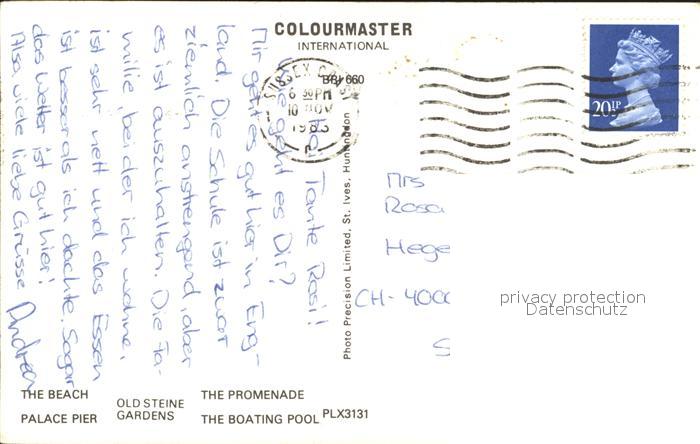 COLOURMASTER
INTERNATIONAL
660
SUSSEX
6 30PM
10 NOV
1983
20½P
Tante Rosi!
geht es Dir?
Mir geht es gut hier in Eng-
land. Die Schule ist zwar
ziemlich anstrengend, aber
es ist auszuhalten. Die Fa-
milie, bei der ich wohne,
ist sehr nett und das Essen
ist besser als ich dachte. Sogar
das Wetter ist gut hier!
Also viele liebe Grüsse Andrea
Photo Precision Limited, St. Ives, Huntingdon
Mrs
Rosa
Hege
CH-4000
S
privacy protection
Datenschutz
THE BEACH
PALACE PIER
OLD STEINE
GARDENS
THE PROMENADE
THE BOATING POOL
PLX3131